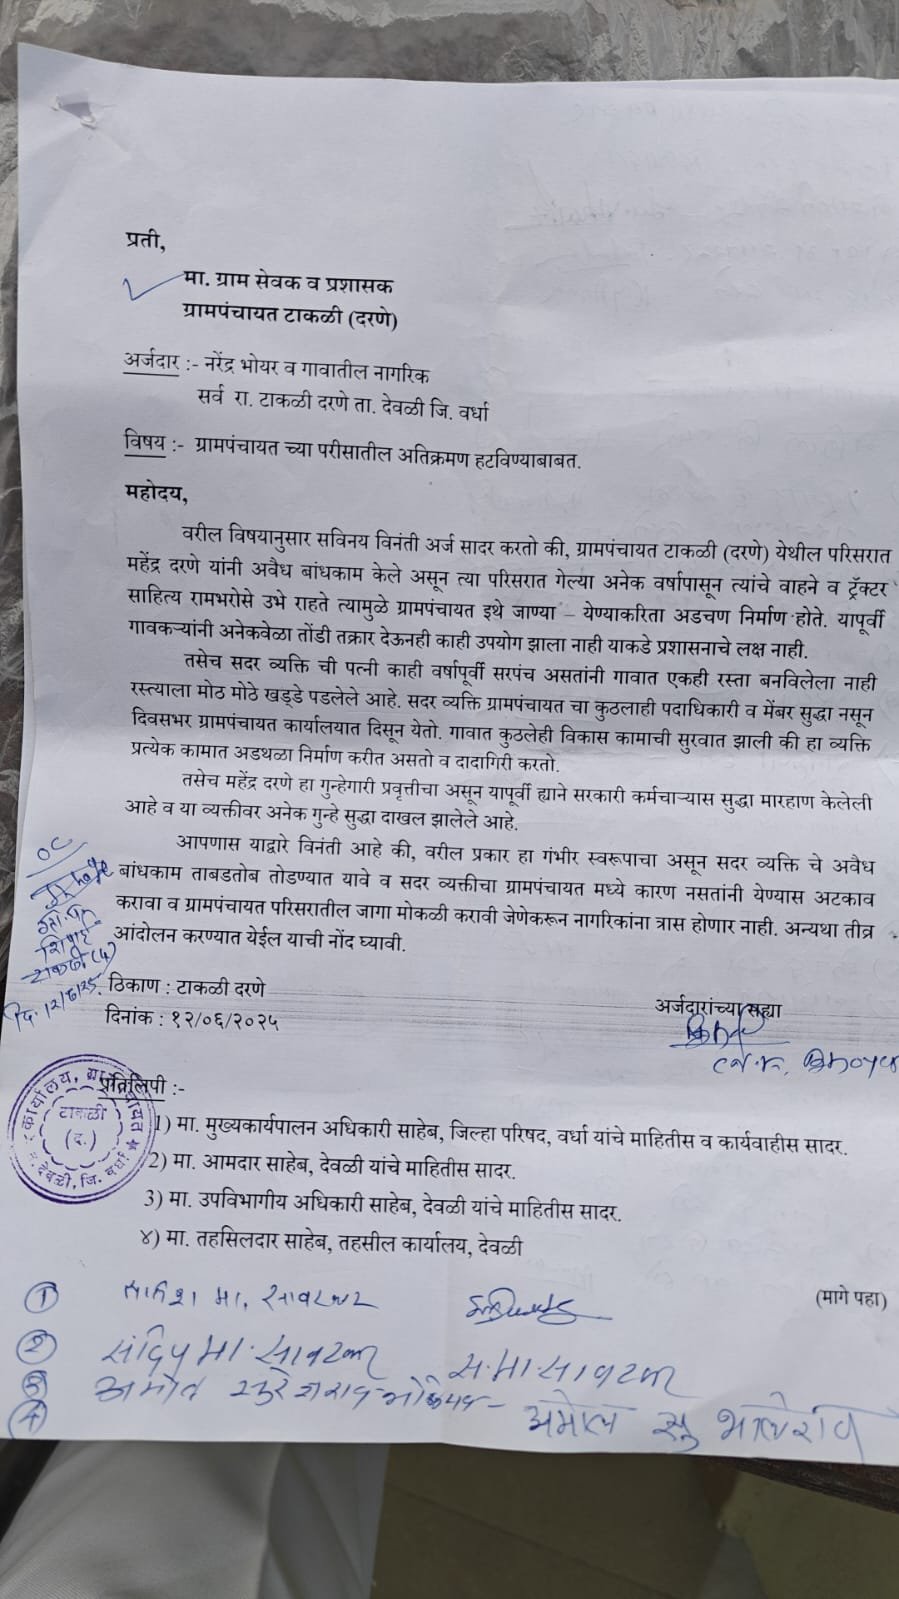 प्रती,
मा. ग्राम सेवक व प्रशासक
ग्रामपंचायत टाकळी (दरणे)
अर्जदार :- नरेंद्र भोयर व गावातील नागरिक
सर्व रा. टाकळी दरणे ता. देवळी जि. वर्धा
विषय :- ग्रामपंचायत च्या परीसातील अतिक्रमण हटविण्याबाबत.
महोदय,
वरील विषयानुसार सविनय विनंती अर्ज सादर करतो की, ग्रामपंचायत टाकळी (दरणे) येथील परिसरात
महेंद्र दरणे यांनी अवैध बांधकाम केले असून त्या परिसरात गेल्या अनेक वर्षापासून त्यांचे वाहने व ट्रॅक्टर
साहित्य रामभरोसे उभे राहते त्यामुळे ग्रामपंचायत इथे जाण्या – येण्याकरिता अडचण निर्माण होते. यापूर्वी
गावकऱ्यांनी अनेकवेळा तोंडी तक्रार देऊनही काही उपयोग झाला नाही याकडे प्रशासनाचे लक्ष नाही.
तसेच सदर व्यक्ति ची पत्नी काही वर्षापूर्वी सरपंच असतांनी गावात एकही रस्ता बनविलेला नाही
रस्त्याला मोठ मोठे खड्डे पडलेले आहे. सदर व्यक्ति ग्रामपंचायत चा कुठलाही पदाधिकारी व मेंबर सुद्धा नसून
दिवसभर ग्रामपंचायत कार्यालयात दिसून येतो. गावात कुठलेही विकास कामाची सुरवात झाली की हा व्यक्ति
प्रत्येक कामात अडथळा निर्माण करीत असतो व दादागिरी करतो.
तसेच महेंद्र दरणे हा गुन्हेगारी प्रवृत्तीचा असून यापूर्वी ह्याने सरकारी कर्मचाऱ्यास सुद्धा मारहाण केलेली
आहे व या व्यक्तीवर अनेक गुन्हे सुद्धा दाखल झालेले आहे.
आपणास याद्वारे विनंती आहे की, वरील प्रकार हा गंभीर स्वरूपाचा असून सदर व्यक्ति चे अवैध
बांधकाम ताबडतोब तोडण्यात यावे व सदर व्यक्तीचा ग्रामपंचायत मध्ये कारण नसतांनी येण्यास अटकाव
करावा व ग्रामपंचायत परिसरातील जागा मोकळी करावी जेणेकरून नागरिकांना त्रास होणार नाही. अन्यथा तीव्र
आंदोलन करण्यात येईल याची नोंद घ्यावी.
OC
शिपाई
टाकळी (द)
दि. १२/६/२५
ठिकाण : टाकळी दरणे
दिनांक : १२/०६/२०२५
अर्जदारांच्या सह्या
प्रतिलिपी :-
टाकळी
(द.)
देवळी, जि. वर्धा
1) मा. मुख्यकार्यपालन अधिकारी साहेब, जिल्हा परिषद, वर्धा यांचे माहितीस व कार्यवाहीस सादर.
2) मा. आमदार साहेब, देवळी यांचे माहितीस सादर.
3) मा. उपविभागीय अधिकारी साहेब, देवळी यांचे माहितीस सादर.
४) मा. तहसिलदार साहेब, तहसील कार्यालय, देवळी
(मागे पहा)
1 मा.
2 संदिप मा. सावरकर स. मा. सावरकर
3
4 अमोल सु भालेराव